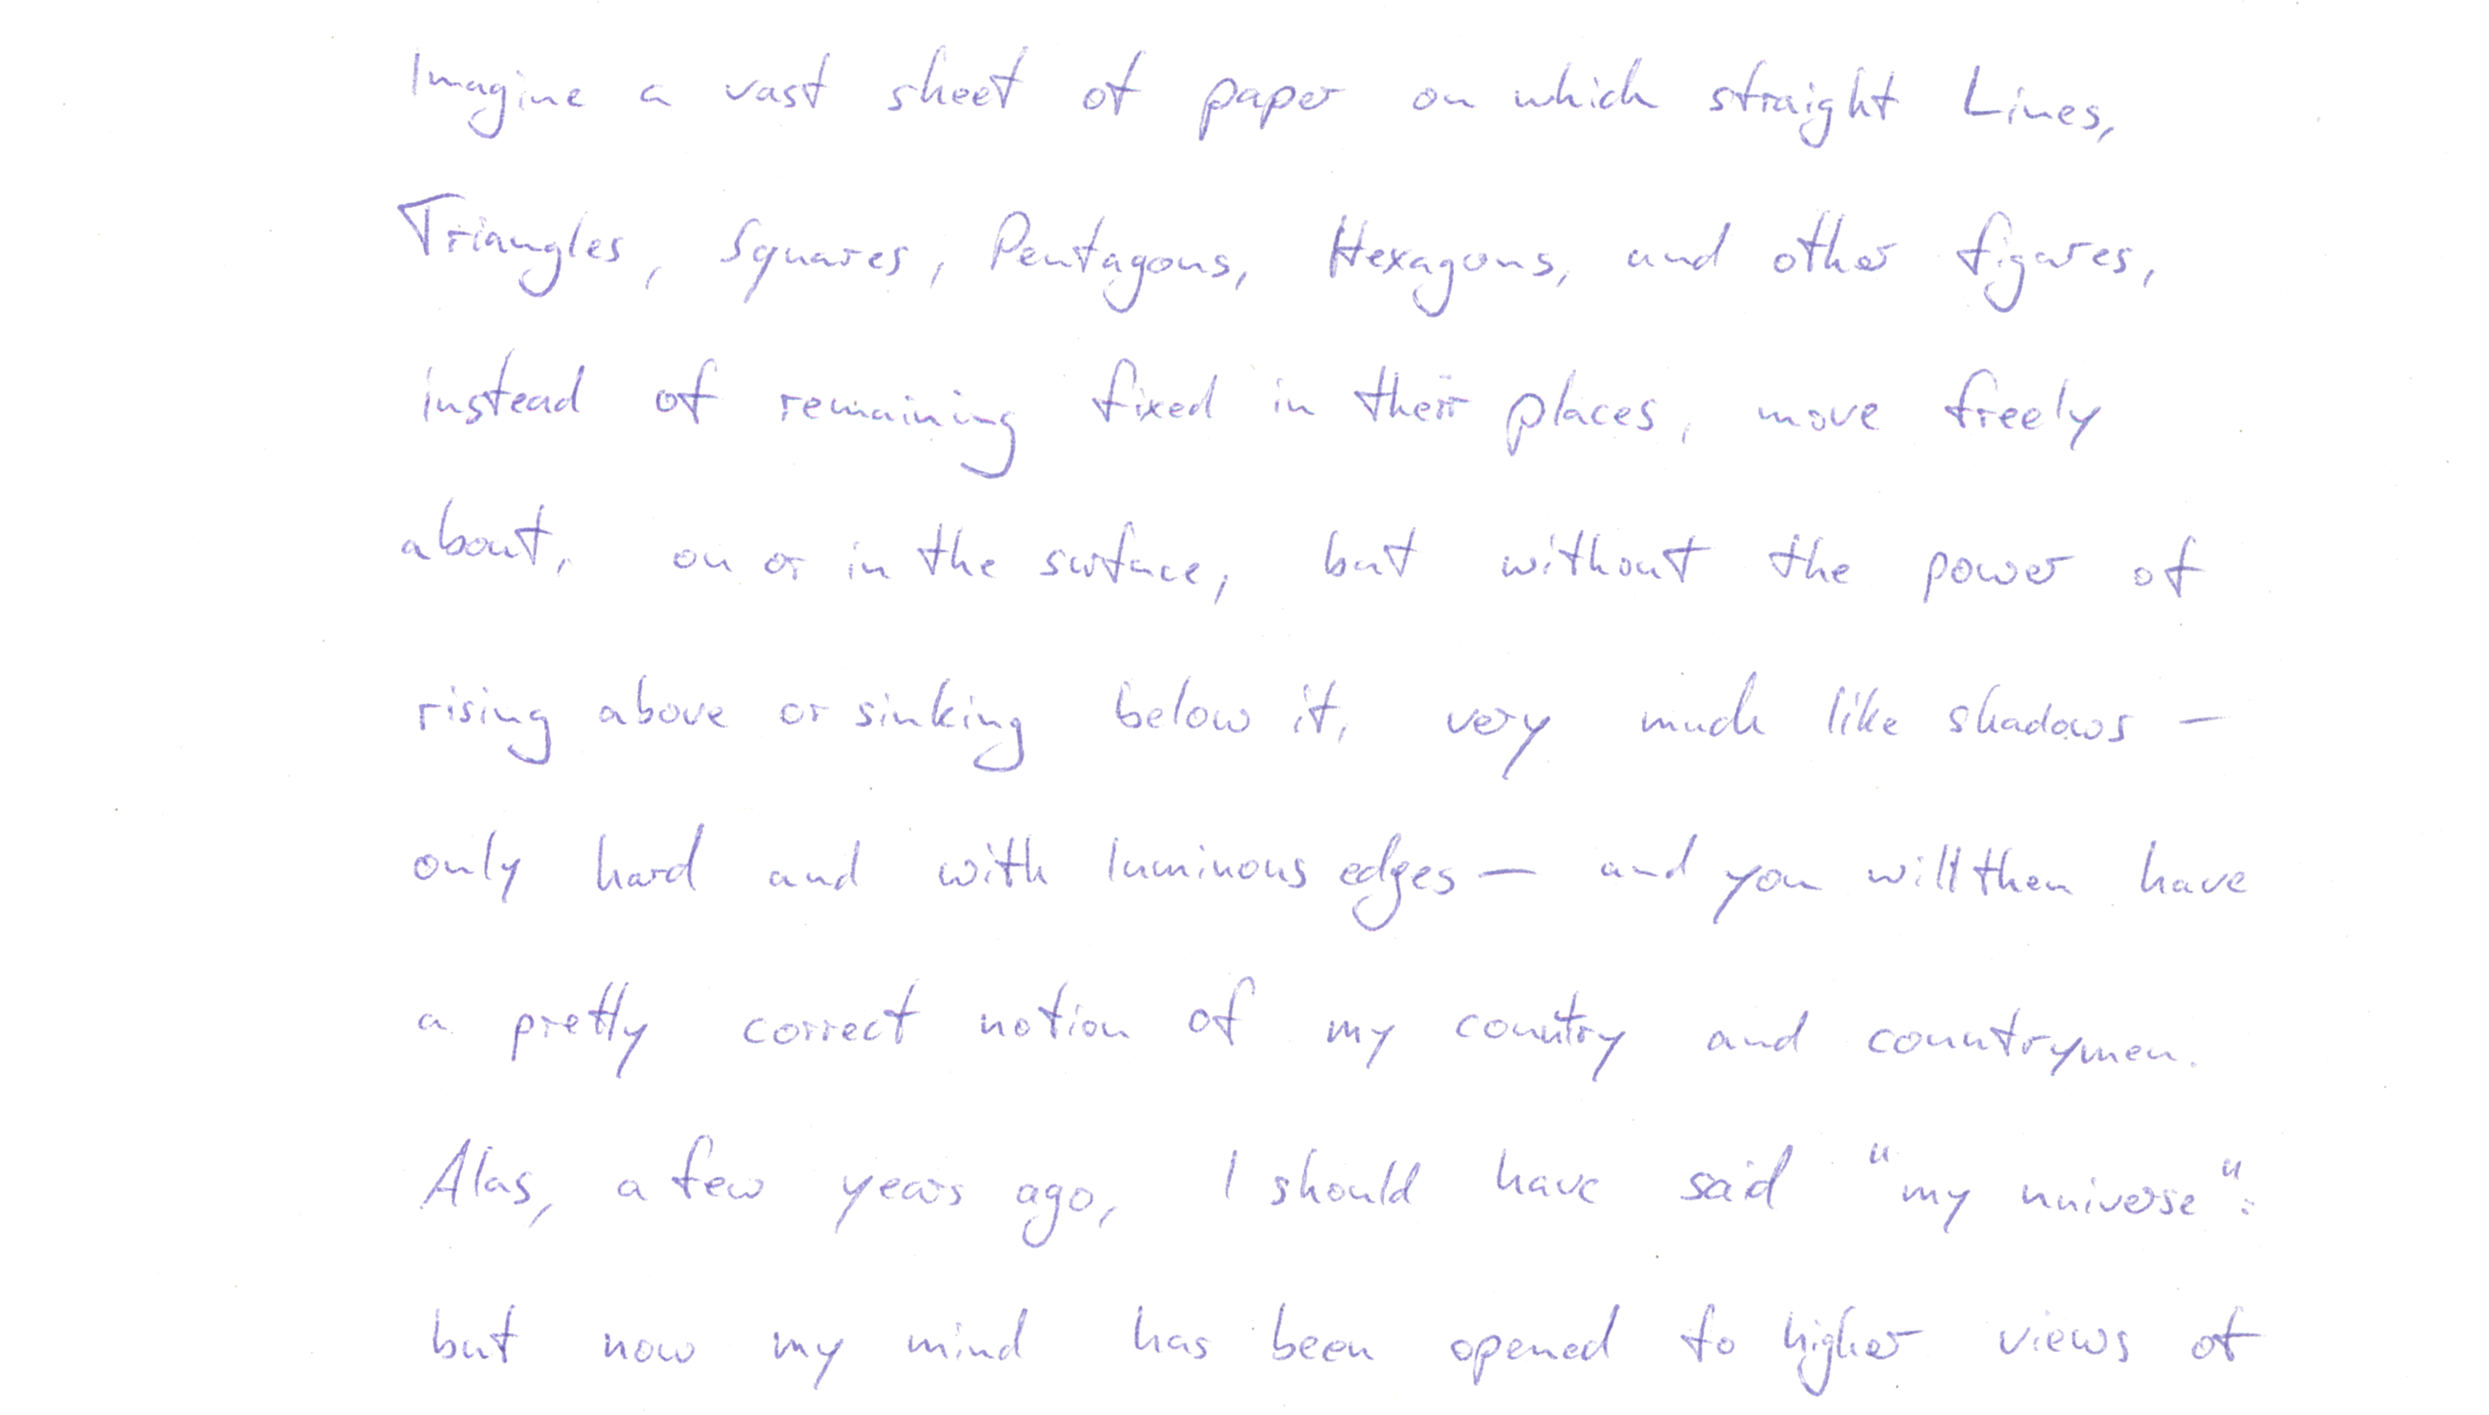 Imagine a vast sheet of paper on which straight Lines,
Triangles, Squares, Pentagons, Hexagons, and other figures,
instead of remaining fixed in their places, move freely
about, on or in the surface, but without the power of
rising above or sinking below it, very much like shadows -
only hard and with luminous edges - and you will then have
a pretty correct notion of my country and countrymen.
Alas, a few years ago, I should have said "my universe":
but now my mind has been opened to higher views of